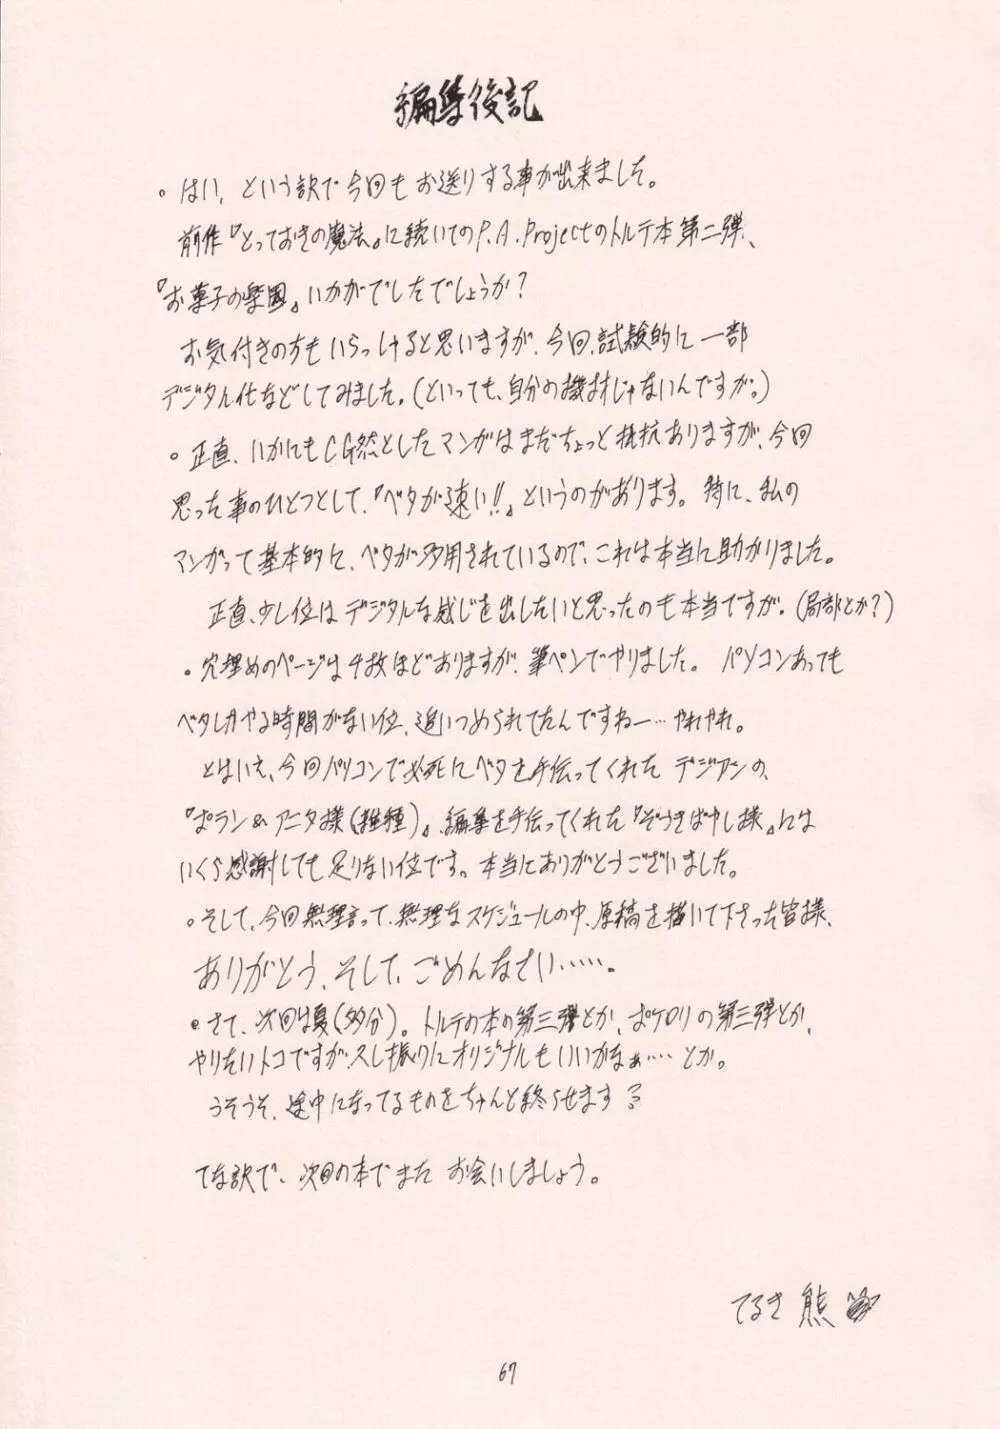 編集後記
。はい、という訳で今回もお送りする事が出来ました。
前作『とっておきの魔法』に続いてのP.A.Projectのトルテ本第二弾、
『お菓子の楽園』いかがでしたでしょうか？
お気付きの方もいらっしゃると思いますが、今回、試験的に一部
デジタル化などしてみました。(といっても、自分の機材じゃないんですが。)
。正直、いかにもCG然としたマンガはまだちょっと抵抗ありますが、今回
思った事のひとつとして、『ベタが速い!!』というのがあります。特に、私の
マンガって基本的に、ベタが多用されているので、これは本当に助かりました。
正直、少し位はデジタルな感じを出したいと思ったのも本当ですが。(局部とか？)
。穴埋めのページは4枚ほどありますが、筆ペンでやりました。 パソコンあっても
ベタしかやる時間がない位、追いつめられてたんですねー…やれやれ。
とはいえ、今回パソコンで必死にベタを手伝ってくれた デジアシの、
『ポラン&アニタ様()』、編集を手伝ってくれた『ぞうきばやし様』には
いくら感謝しても足りない位です。本当にありがとうございました。
。そして、今回無理言って、無理なスケジュールの中、原稿を描いて下さった皆様、
ありがとう、そして、ごめんなさい……。
。さて、次回は夏(多分)。トルテの本の第三弾とか、おケロリの第三弾とか、
やりたいトコですが、久し振りにオリジナルもいいかなぁ……とか。
うそうそ、途中になってるものをちゃんと終らせます？
てな訳で、次回の本でまた お会いしましょう。
てるき熊
67